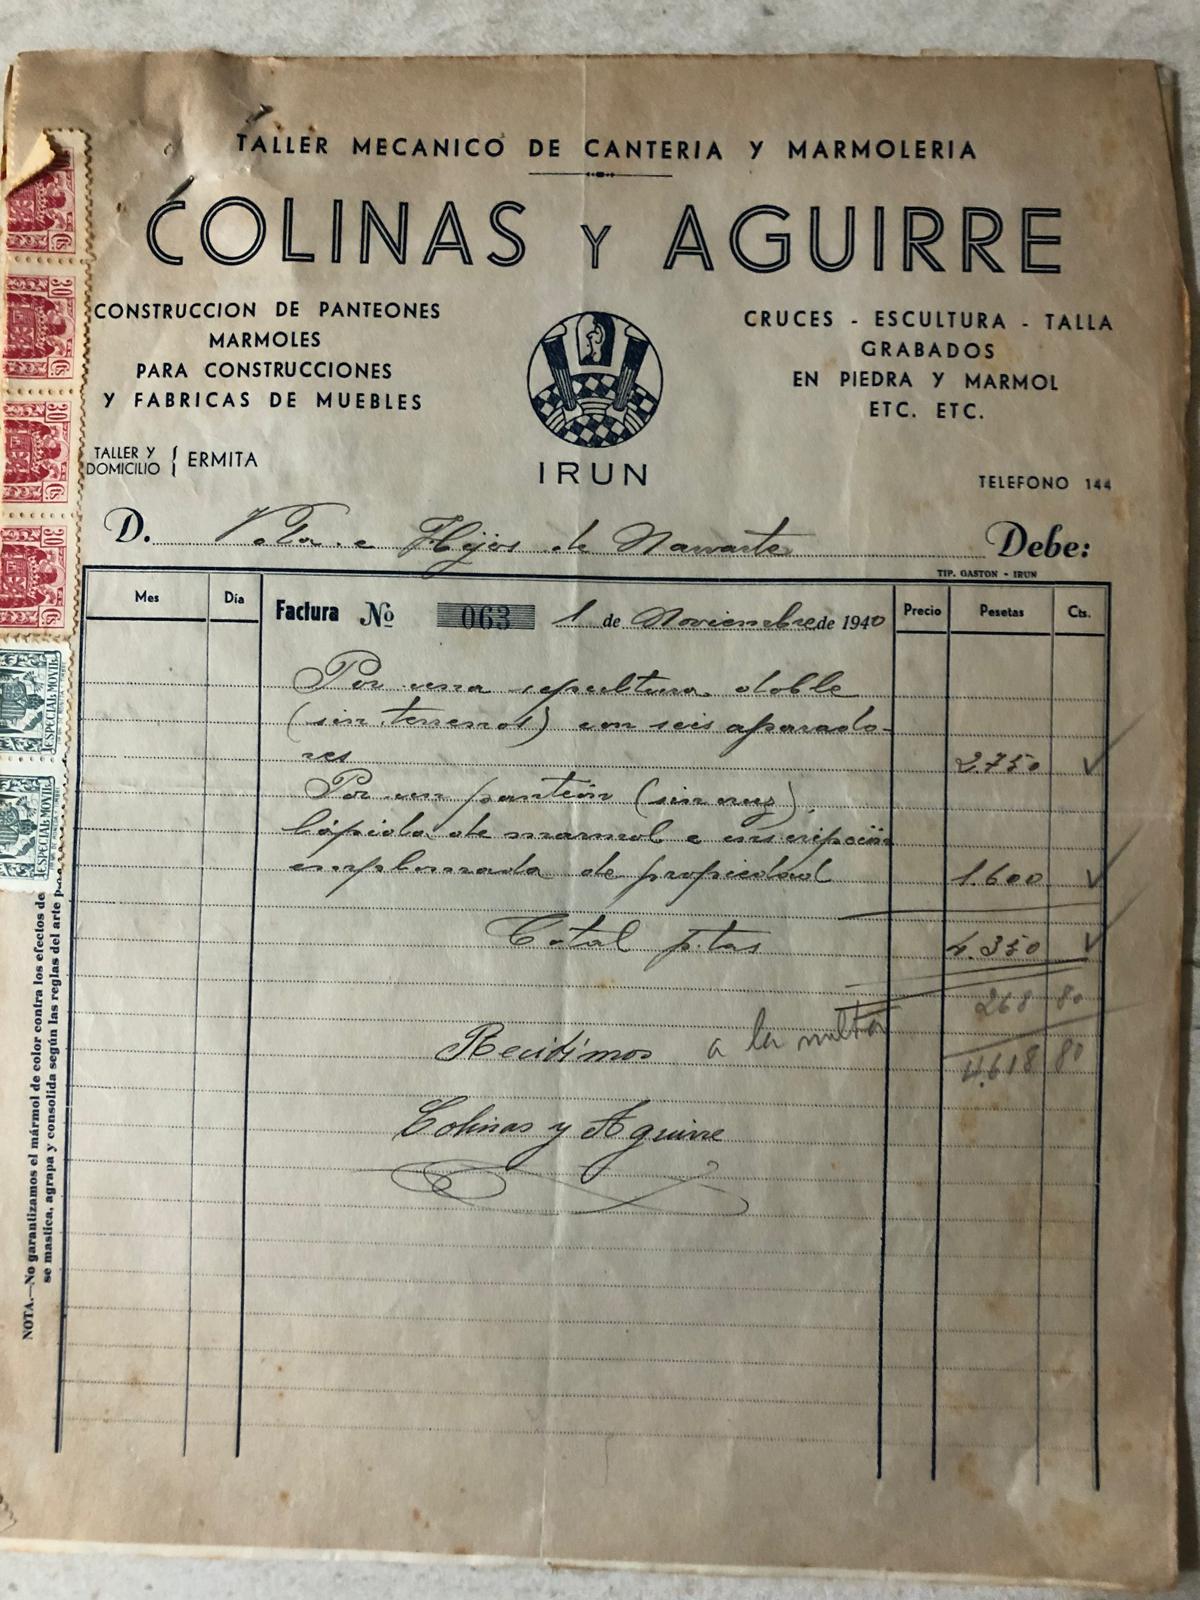 TALLER MECANICO DE CANTERIA Y MARMOLERIA
COLINAS Y AGUIRRE
CONSTRUCCION DE PANTEONES
MARMOLES
PARA CONSTRUCCIONES
Y FABRICAS DE MUEBLES
CRUCES - ESCULTURA - TALLA
GRABADOS
EN PIEDRA Y MARMOL
ETC. ETC.
TALLER Y DOMICILIO { ERMITA
IRUN
TELEFONO 144
D. Vda. e Hijos de Navarte Debe:
TIP. GASTON - IRUN
Mes Día Factura Nº 063 1 de Noviembre de 1940 Precio Pesetas Cts.
Por una sepultura doble
(sin terrenos) con seis aparado-
res 2.750
Por un panteón (sin cruz),
lápida de marmol e inscripción
emplomada de propiedad 1.600
Total ptas 4.350
268 80
Recibimos a la
4.618 80
Colinas y Aguirre
NOTA.—No garantizamos el mármol de color contra los efectos de
se mastica, agrapa y consolida según las reglas del arte
30 Cts.
30 Cts.
30 Cts.
30 Cts.
ESPECIAL MOVIL
ESPECIAL MOVIL